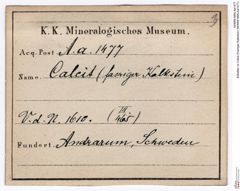 K. K. Mineralogisches Museum.
Acq. Post A. a. 1477
Name: Calcit (faseriger Kalkstein)
V. d. N. 1610.
Fundort: Andrarum, Schweden